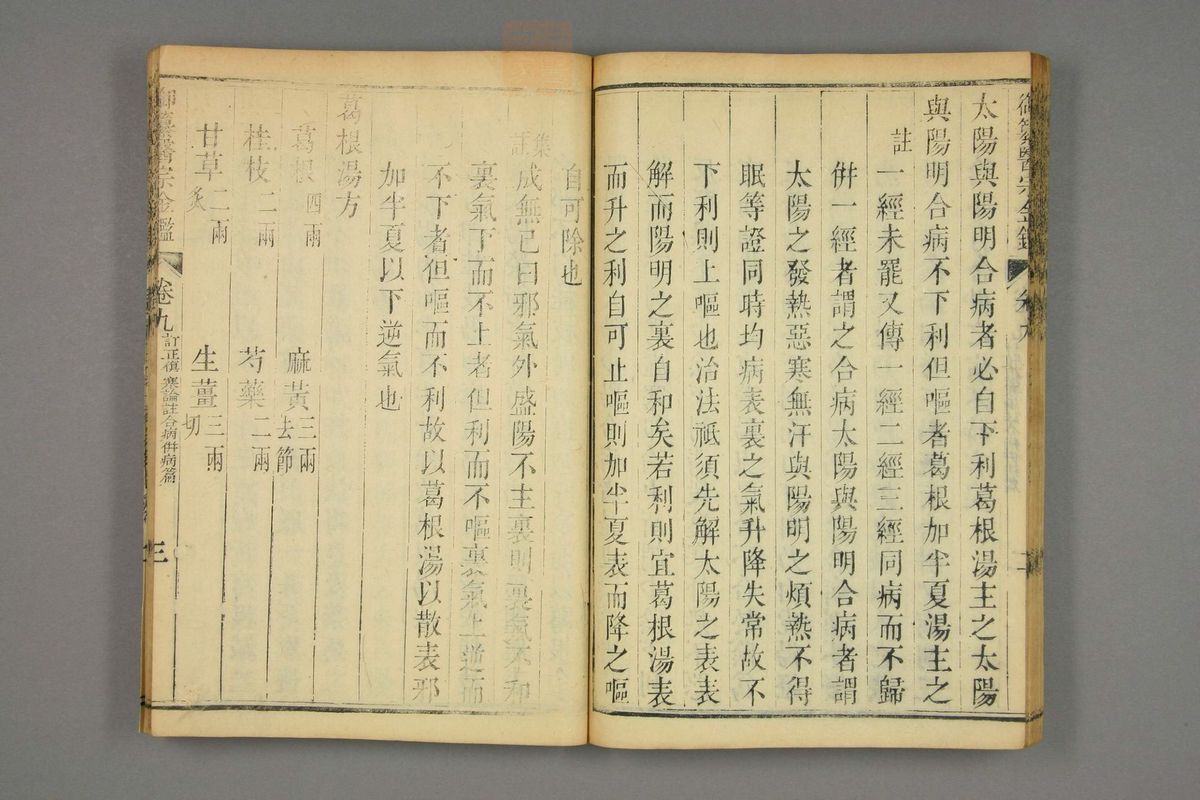 御纂醫宗金鑑
卷九
太陽與陽明合病者必自下利葛根湯主之太陽
與陽明合病不下利但嘔者葛根加半夏湯主之
註
一經未罷又傳一經二經三經同病而不歸
併一經者謂之合病太陽與陽明合病者謂
太陽之發熱惡寒無汗與陽明之煩熱不得
眠等證同時均病表裏之氣升降失常故不
下利則上嘔也治法祗須先解太陽之表表
解而陽明之裏自和矣若利則宜葛根湯表
而升之利自可止嘔則加半夏表而降之嘔
自可除也
集註
成無已曰邪氣外盛陽不主裏則裏氣不和
裏氣下而不上者但利而不嘔裏氣上逆而
不下者但嘔而不利故以葛根湯以散表邪
加半夏以下逆氣也
葛根湯方
葛根四兩 麻黃三兩去節
桂枝二兩 芍藥二兩
甘草二兩炙 生薑三兩切
御纂醫宗金鑑 卷九 訂正傷寒論註合病併病篇 三